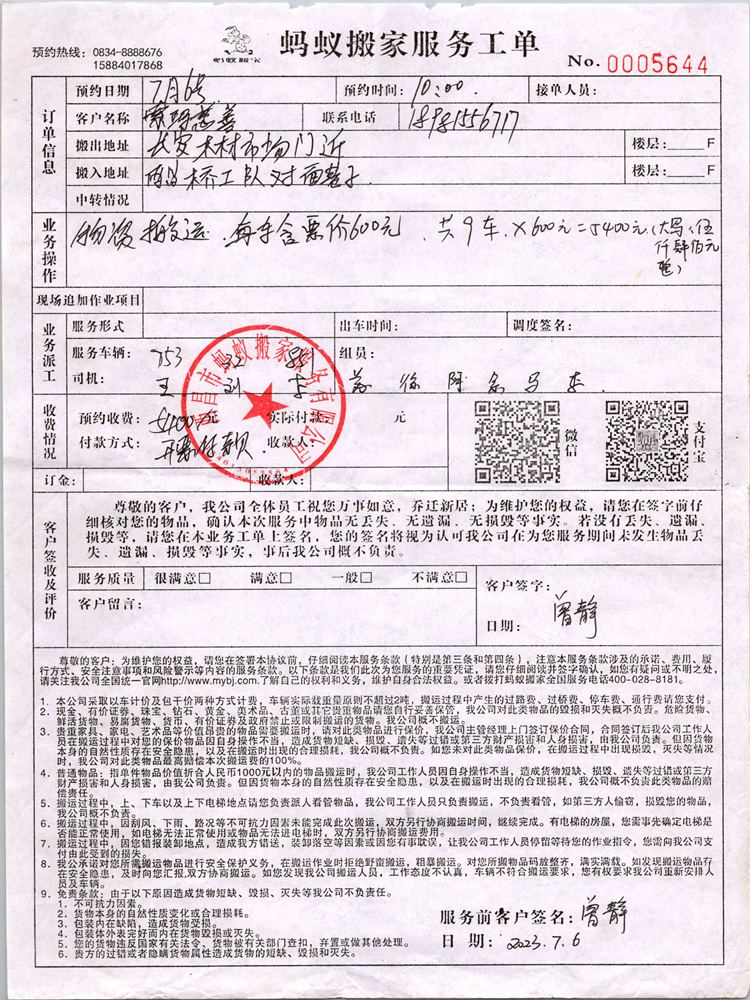 预约热线: 0834-8888676
15884017868
蚂蚁搬家服务工单
No. 0005644
订单信息
预约日期 7月6号 预约时间: 10:00 接单人员:
客户名称 慈善 联系电话 18981556717
搬出地址 长安木材市场门近 楼层: F
搬入地址 桥工队对面 楼层: F
中转情况
业务操作
物资搬运. 每车含票价600元. 共9车. ×600元=5400元.(大写:伍
仟肆佰元
整)
现场追加作业项目
业务派工
服务形式 出车时间: 调度签名:
服务车辆: 组员:
司机: 王 刘 李
昌市蚂蚁搬家服务有限公司
收费情况
预约收费: 5400元 实际付款: 元
付款方式: 开票付款 收款人:
微信
支付宝
订金: 收款人:
客户签收及评价
尊敬的客户，我公司全体员工祝您万事如意，乔迁新居；为维护您的权益，请您在签字前仔
细核对您的物品，确认本次服务中物品无丢失、无遗漏、无损毁等事实。若没有丢失、遗漏、
损毁等，请您在本业务工单上签名，您的签名将视为认可我公司在为您服务期间未发生物品丢
失、遗漏、损毁等事实，事后我公司概不负责。
服务质量 很满意□ 满意□ 一般□ 不满意□
客户留言:
客户签字: 曾静
日期:
尊敬的客户；为维护您的权益，请您在签署本协议前，仔细阅读本服务条款（特别是第三条和第四条），注意本服务条款涉及的承诺、费用、履
行方式、安全注意事项和风险警示等内容的服务条款。以下条款是我们此次为您服务的重要凭证，请您仔细阅读并签字确认，如您有疑问或不明之处，
请关注我公司全国统一官网http://www.mybj.com.了解自己的权利和义务，维护自身合法权益。或者拨打蚂蚁搬家全国服务电话400-028-8181。
1. 本公司采取以车计价及包干价两种方式计费，车辆实际载重量原则不超过2吨，搬运过程中产生的过路费、过桥费、停车费、通行费请您支付。
2. 现金、有价证券、珠宝、钻石、黄金、美术品、古董或其它贵重物品请您自行妥善保管，我公司对此类物品的毁损和灭失概不负责。危险货物、
鲜活货物、易腐货物、货币、有价证券及政府禁止或限制搬运的货物。我公司概不搬运。
3. 贵重家具、家电、艺术品等价值昂贵的物品需要搬运时，请对此类物品进行保价，我公司主管经理上门签订保价合同，合同签订后我公司工作人
员在搬运过程中对您的保价物品因自身操作不当，造成货物短缺、损毁、遗失等过错或第三方财产损害和人身损害，由我公司负责。但因货物
本身的自然性质存在安全隐患，以及在搬运时出现的合理损耗，我公司概不负责。如您未对此类物品保价，在搬运过程中出现损毁，灭失等情况
时，我公司对此类物品最高赔偿本次搬运费的100%。
4. 普通物品：指单件物品价值折合人民币1000元以内的物品搬运时，我公司工作人员因自身操作不当，造成货物短缺、损毁、遗失等过错或第三方
财产损害和人身损害，由我公司负责。但因货物本身的自然性质存在安全隐患，以及在搬运时出现的合理损耗，我公司概不负责此类物品的赔
偿责任。
5. 搬运过程中，上、下车以及上下电梯地点请您负责派人看管物品，我公司工作人员只负责搬运，不负责看管，如第三方人偷窃，损毁您的物品，
我公司概不负责。
6. 搬运过程中，因刮风、下雨、路况等不可抗力因素未能完成此次搬运，双方另行协商搬运时间，继续完成。有电梯的房屋，您需事先确定电梯是
否能正常使用，如电梯无法正常使用或物品无法进电梯时，双方另行协商搬运费用。
7. 搬运过程中，因您错报装卸地点，造成我方错送，装卸落空等因素或因您有事耽误，让我公司工作人员停留等待您的作业指令，您需向我公司支
付由此受到的损失。
8. 我公承诺对您所需搬运物品进行安全保护义务，在搬运作业时拒绝野蛮搬运，粗暴搬运。对您所搬物品码放整齐，满实满载。如发现搬运物品存
在安全隐患，及时向您汇报,双方协商搬运。如您发现我公司搬运人员，工作态度不认真，车辆不符合搬运要求，您有权要求我公司重新安排人
员及车辆。
9. 免责条款：由于以下原因造成货物短缺、毁损、灭失等我公司不负责任。
1. 不可抗力因素。
2. 货物本身的自然性质变化或合理损耗。
3. 包装内在缺陷，造成货物受损。
4. 包装体外表完好而内在货物毁损或灭失。
5. 您的货物违反国家有关法令、货物被有关部门查扣，弃置或做其他处理。
6. 贵方的过错或者隐瞒货物属性造成货物的短缺、毁损和灭失。
服务前客户签名: 曾静
日 期: 2023.7.6